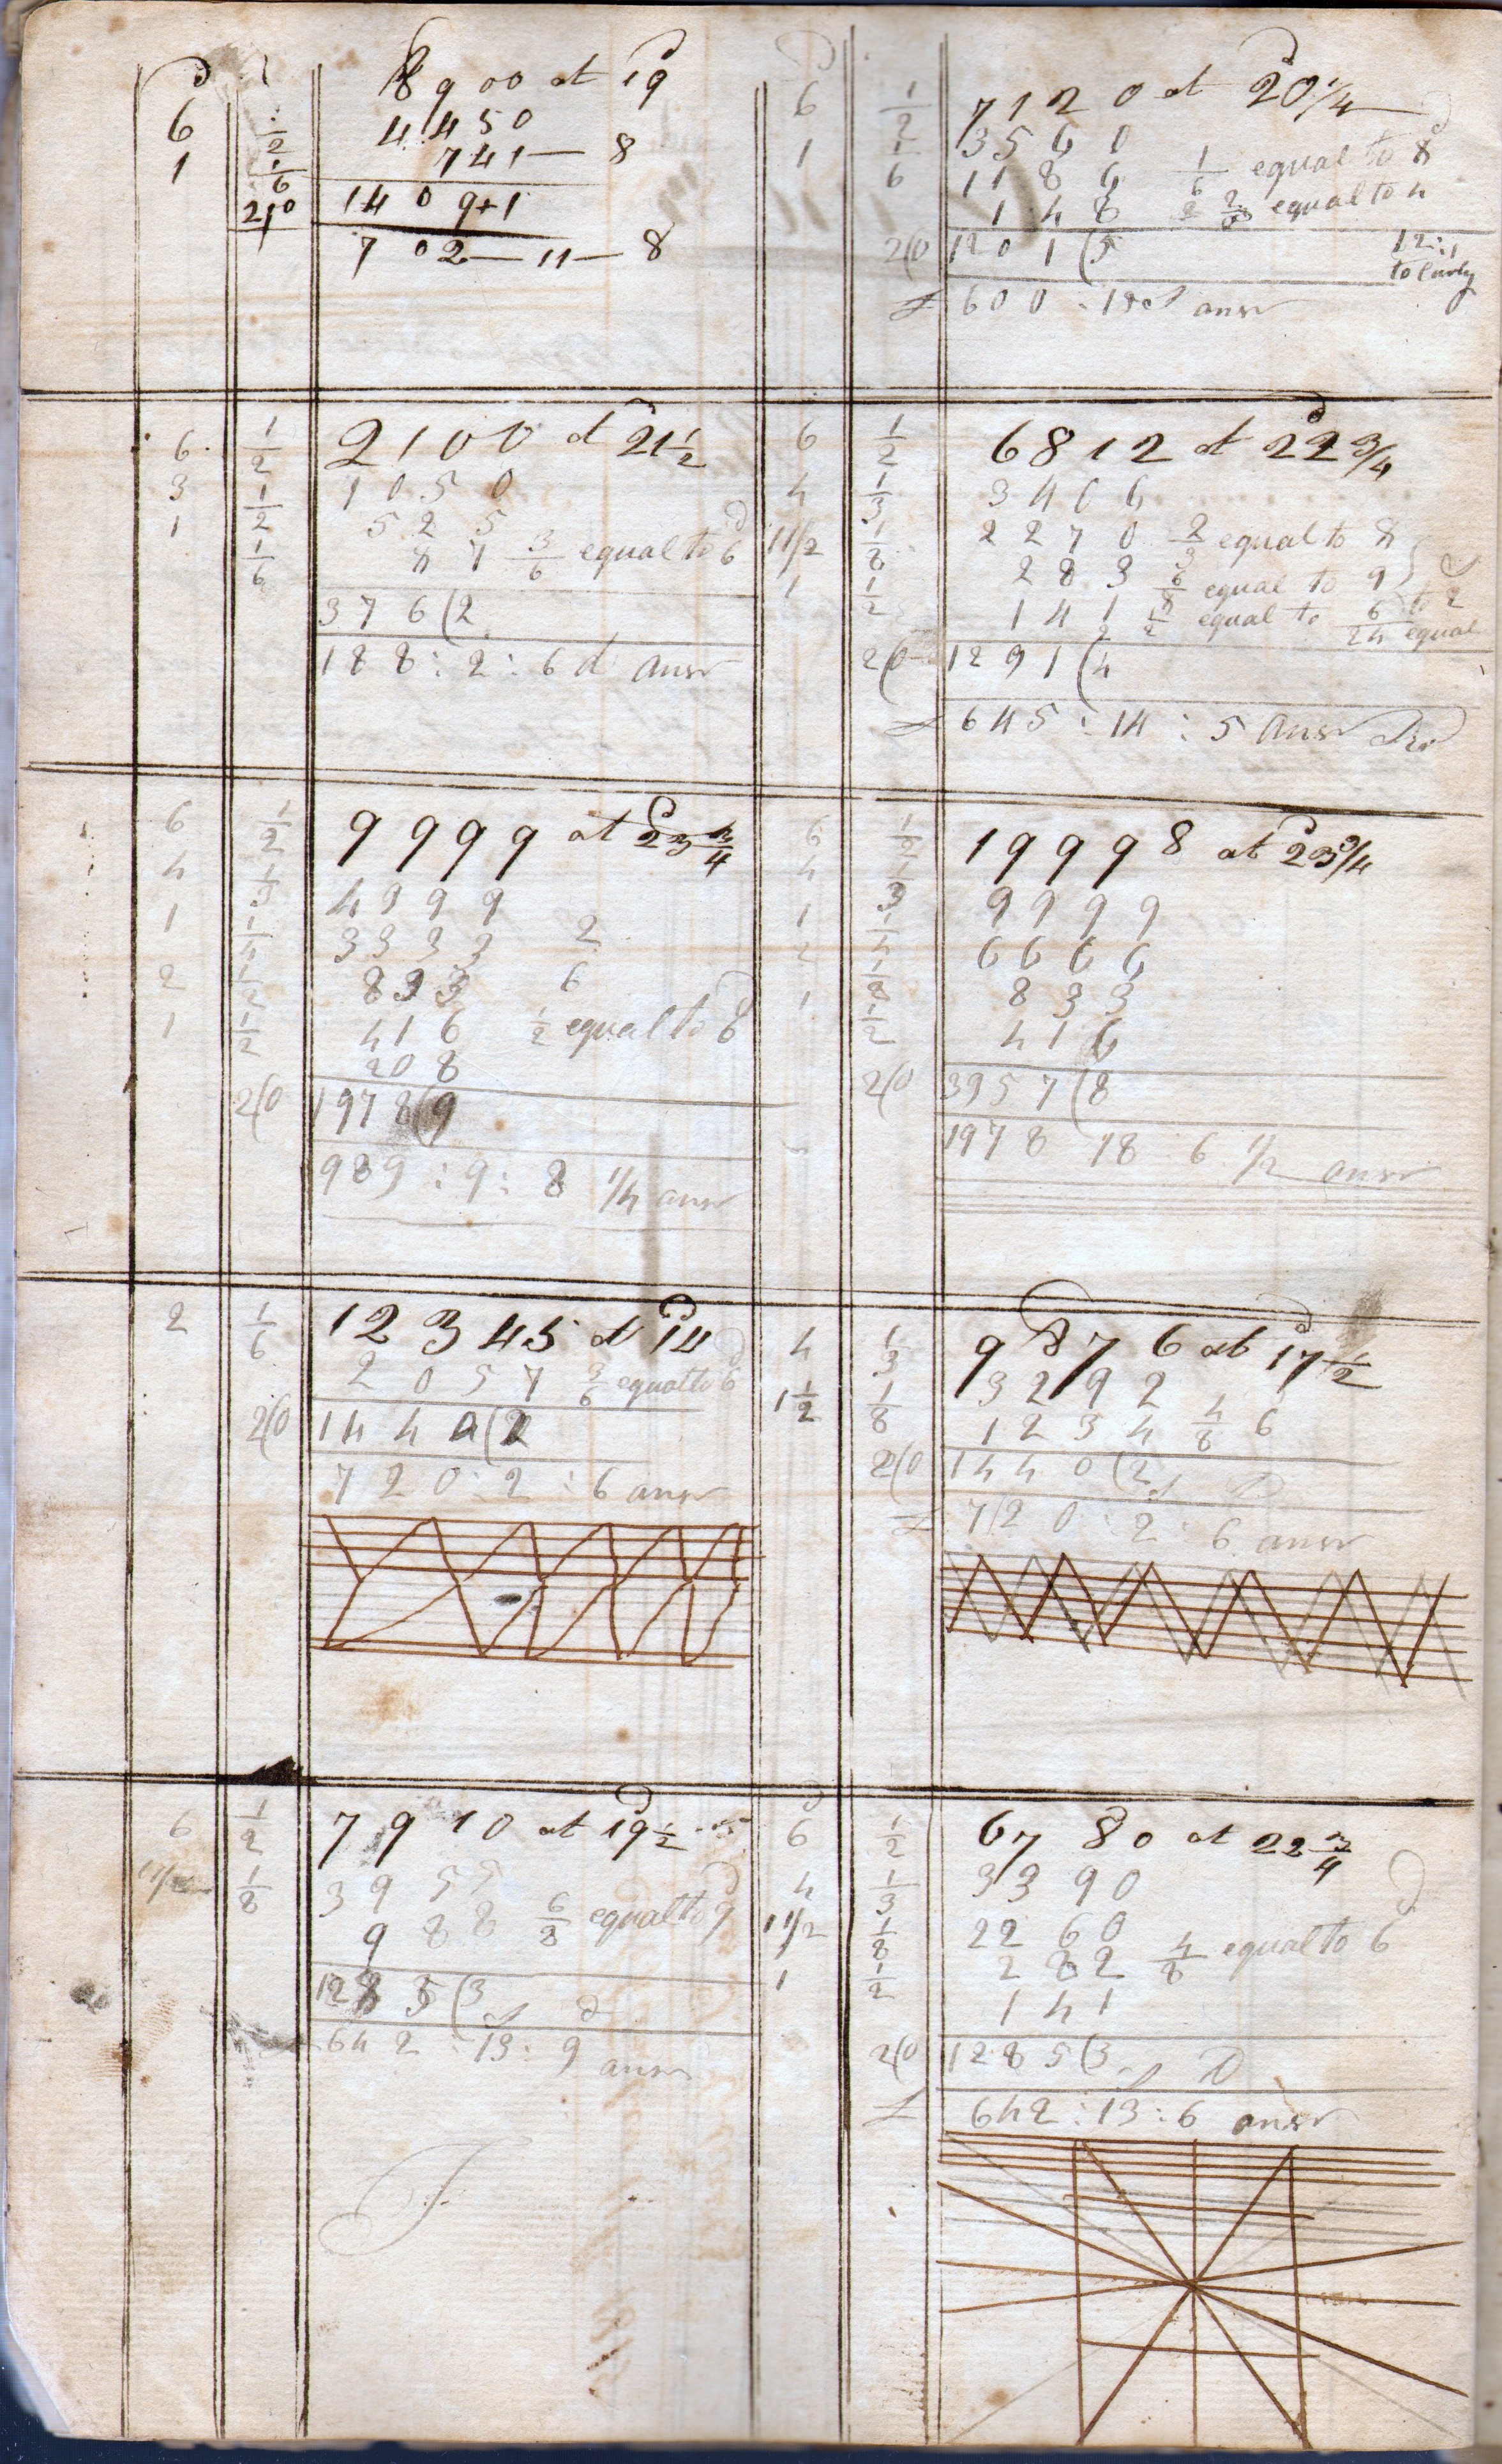 8900 at 19
6 1/2 4450
1 1/6 741 — 8
2,0 1409+1
702 — 11 — 8
6 1/2 7120 at 20 1/4
1 1/6 3560
1186 equal to 8
148 equal to 4
2(0 1201(5
£ 600 : ansr
6 1/2 2100 at 21 1/2
3 1/2 1050
1 1/6 525
87 3/6 equal to 6
376(2
188 : 2 : 6 d ansr
6 1/2 6812 at 22 3/4
4 1/3 3406
1 1/2 1/8 2270 2/3 equal to 8
1 1/2 283 equal to 9
141 1/2 equal to 6 to 2
24 equal
2(0 1291(4
£ 645 : 14 : 5 ansr
6 1/2 9999 at 23 3/4
4 1/3 4999
1 1/4 3333 2
2 1/2 833 6
1 1/2 416 1/2 equal to 8
208
2(0 1978(9
989 : 9 : 8 1/4 ansr
6 1/2 19998 at 23 3/4
4 1/3 9999
1 1/4 6666
2 1/8 833
1 1/2 416
2(0 3957(8
1978 18 : 6 1/2 ansr
2 1/6 12345 at 14
2057 3/6 equal to 6
2(0 1440(2
720 : 2 : 6 ansr
4 1/3 9876 at 17 1/2
1 1/2 1/8 3292
1234 4/8 6
2(0 1440(2
£ 720 : 2 : 6 ansr
6 1/2 7910 at 19 1/2
1 1/2 1/8 3955
988 6/8 equal to 9
1285(3
642 : 13 : 9 ansr
6 1/2 6780 at 22 3/4
4 1/3 3390
1 1/2 1/8 2260
1 1/2 282 4/8 equal to 6
141
2(0 1285(3
£ 642 : 13 : 6 ansr